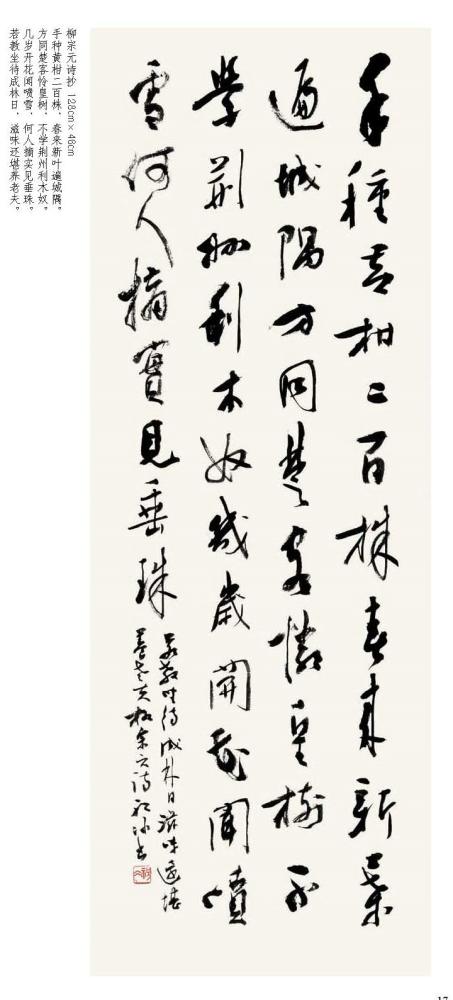 手種黄柑二百株春来新葉
遍城隅方同楚客憐皇樹不
學荆州利木奴幾歲開花聞噴
雪何人摘實見垂珠
若教坐待成林日滋味還堪
養老夫柳宗元诗
柳宗元诗抄 128cm×46cm
手种黄柑二百株，春来新叶遍城隅。
方同楚客怜皇树，不学荆州利木奴。
几岁开花闻喷雪，何人摘实见垂珠。
若教坐待成林日，滋味还堪养老夫。
17